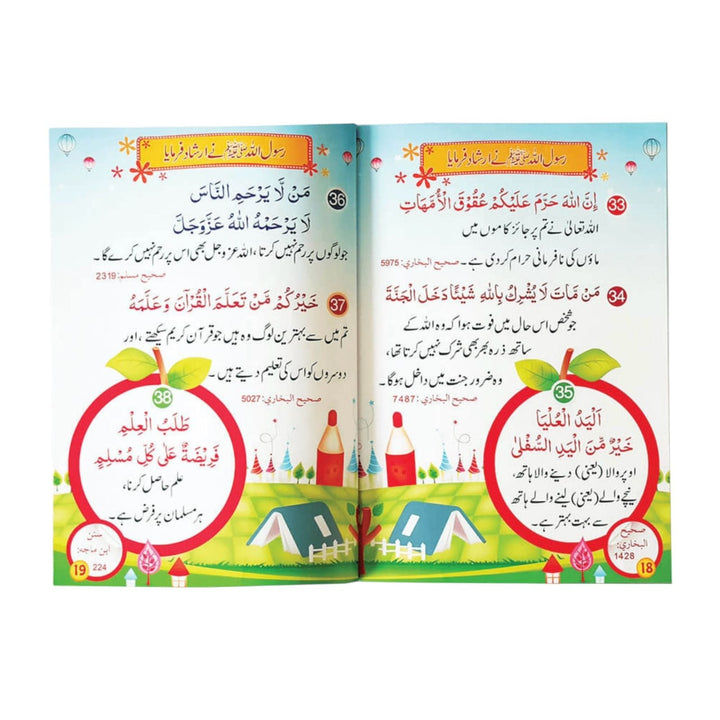 رسول اللہ ﷺ نے ارشاد فرمایا
33
إِنَّ اللهَ حَرَّمَ عَلَيْكُمْ عُقُوْقَ الْأُمَّهَاتِ
اللہ تعالیٰ نے تم پر جائز کاموں میں
ماؤں کی نافرمانی حرام کردی ہے۔ صحيح البخاري: 5975
34
مَنْ مَاتَ لَا يُشْرِكُ بِاللهِ شَيْئًا دَخَلَ الْجَنَّةَ
جو شخص اس حال میں فوت ہوا کہ وہ اللہ کے
ساتھ ذرہ بھر بھی شرک نہیں کرتا تھا،
وہ ضرور جنت میں داخل ہوگا۔
صحيح البخاري: 7487
35
اَلْيَدُ الْعُلْيَا
خَيْرٌ مِّنَ الْيَدِ السُّفْلٰى
اوپر والا (یعنی) دینے والا ہاتھ،
نیچے والے (یعنی) لینے والے ہاتھ
سے بہت بہتر ہے۔
صحيح
البخاري:
1428
18
رسول اللہ ﷺ نے ارشاد فرمایا
36
مَنْ لَّا يَرْحَمِ النَّاسَ
لَا يَرْحَمْهُ اللهُ عَزَّوَجَلَّ
جو لوگوں پر رحم نہیں کرتا، اللہ عزوجل بھی اس پر رحم نہیں کرے گا۔
صحيح مسلم: 2319
37
خَيْرُكُمْ مَّنْ تَعَلَّمَ الْقُرْآنَ وَعَلَّمَهُ
تم میں سے بہترین لوگ وہ ہیں جو قرآن کریم سیکھتے، اور
دوسروں کو اس کی تعلیم دیتے ہیں۔
صحيح البخاري: 5027
38
طَلَبُ الْعِلْمِ
فَرِيْضَةٌ عَلٰى كُلِّ مُسْلِمٍ
علم حاصل کرنا،
ہر مسلمان پر فرض ہے۔
سنن
ابن ماجه:
224
19